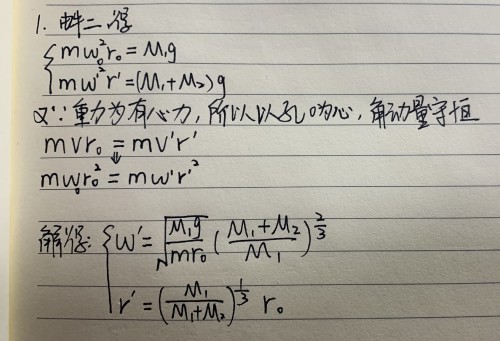 1. 由牛二得
{ mω₀²r₀ = M₁g
mω'²r' = (M₁+M₂)g
又∵重力为有心力,所以以孔O为心,角动量守恒
mvr₀ = mv'r'
⇓
mω₀r₀² = mω'r'²
解得: { ω' = √(M₁g/mr₀) ((M₁+M₂)/M₁)^(2/3)
r' = (M₁/(M₁+M₂))^(1/3) r₀